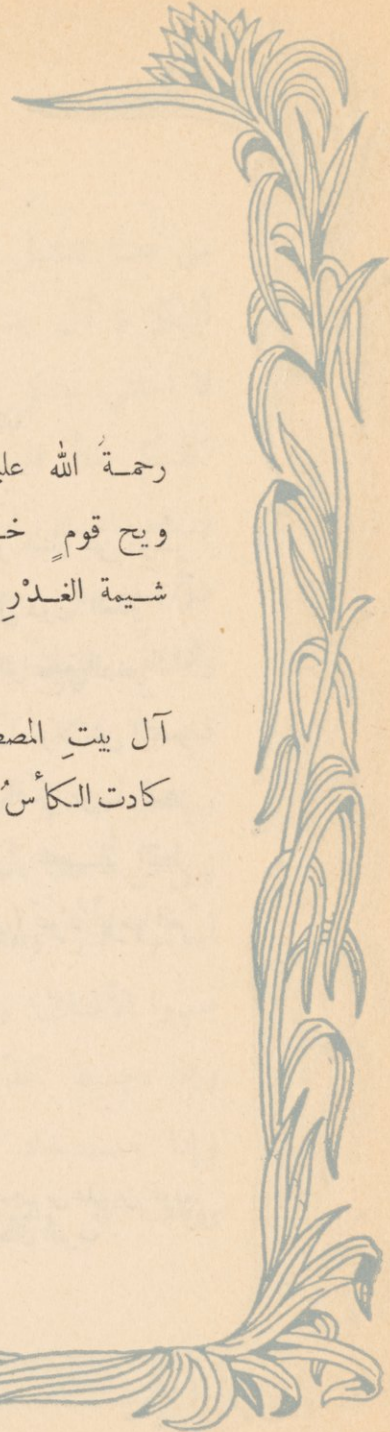 رحمـةُ الله
ويح قومٍ
شـيمة الغـدْرِ
آل بيتِ
كادت الكأسُ